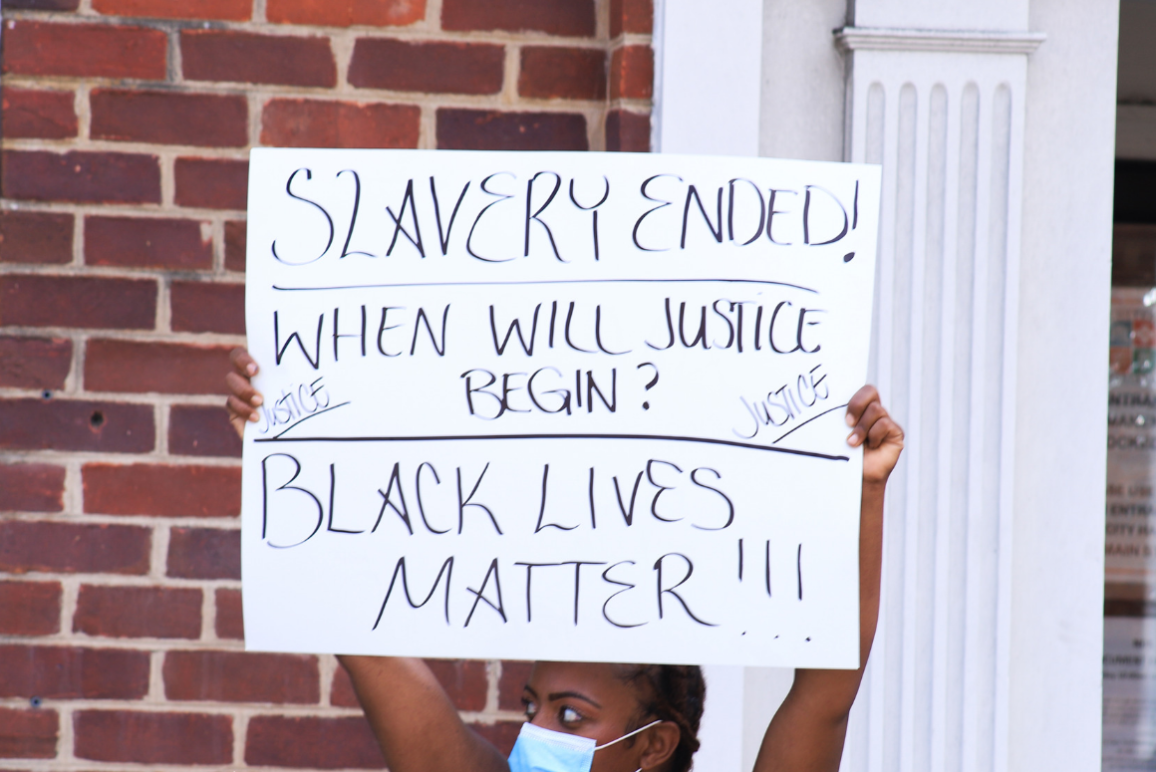 SLAVERY ENDED!
WHEN WILL JUSTICE
BEGIN?
JUSTICE
JUSTICE
BLACK LIVES
MATTER!!!